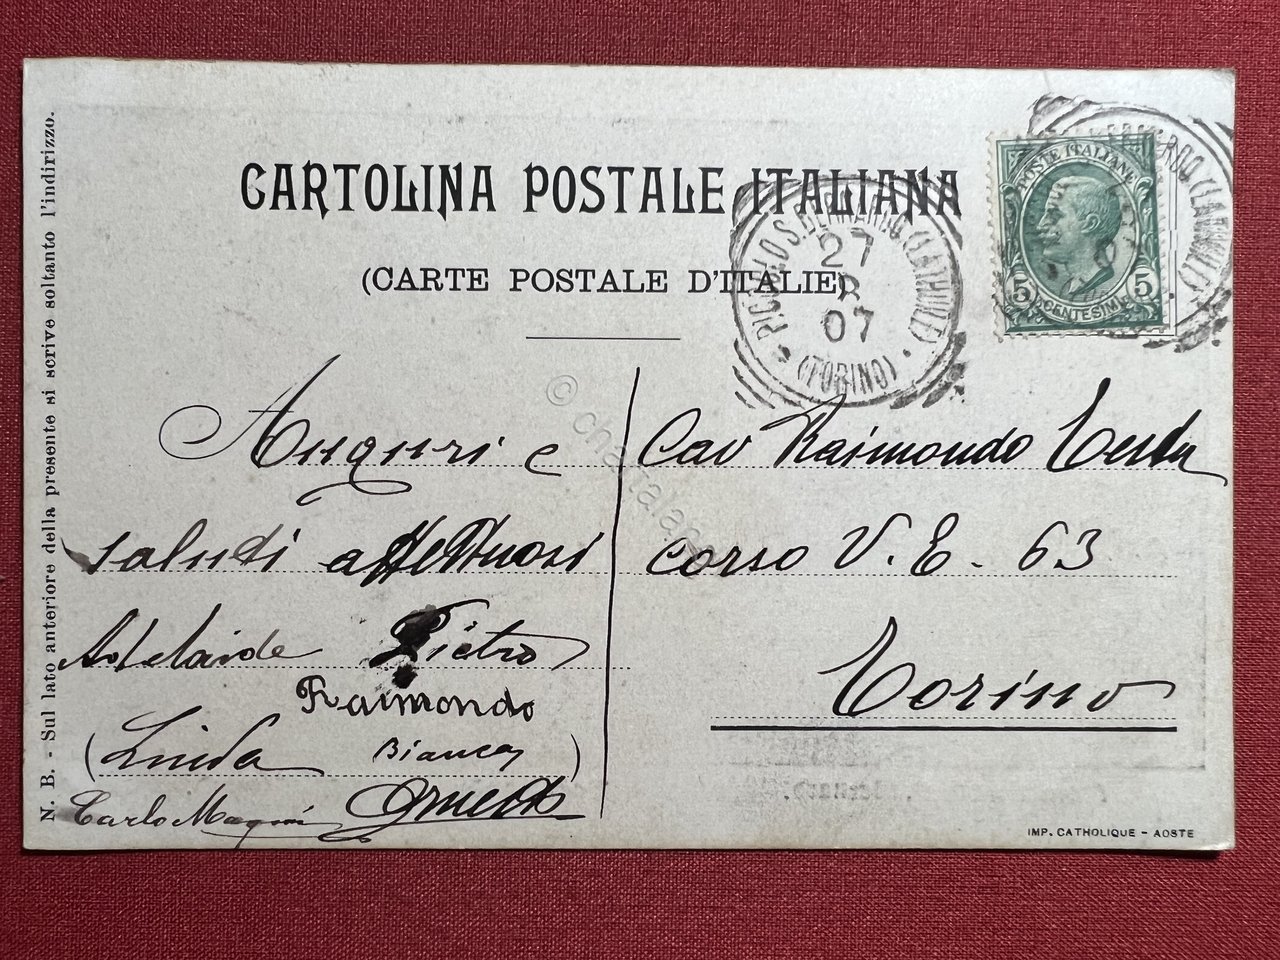 CARTOLINA POSTALE ITALIANA
(CARTE POSTALE D'ITALIE)
POSTE ITALIANE
5 CENTESIMI 5
PICCOLO S. BERNARDO (LATHUILE)
27
8
07
(TORINO)
N. B. - Sul lato anteriore della presente si scrive soltanto l'indirizzo.
Auguri e
saluti affettuosi
Adelaide Pietro
Raimondo
(Linda Bianca)
Carlo Magni
Cav Raimondo Testa
corso V. E. 63
Torino
IMP. CATHOLIQUE - AOSTE